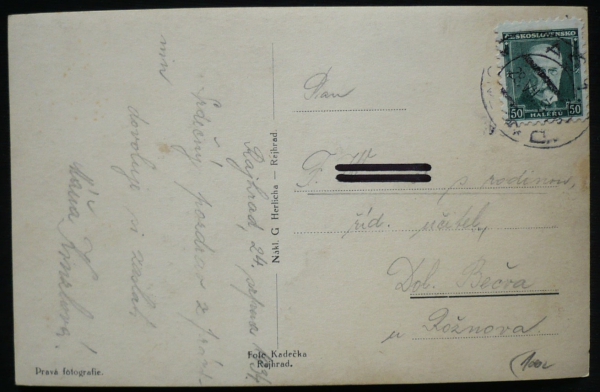 Rajhrad 24. srpna 1934.
Srdečný pozdrav z
min
dovoluje si zaslat
Máňa
Nákl. G Herlicha — Rejhrad.
Foto Kadečka
Rejhrad.
Pravá fotografie.
ČESKOSLOVENSKO
50 HALÉŘŮ 50
Pan
F. s rodinou,
říd. učitel,
Dol. Bečva
u Rožnova
100,-